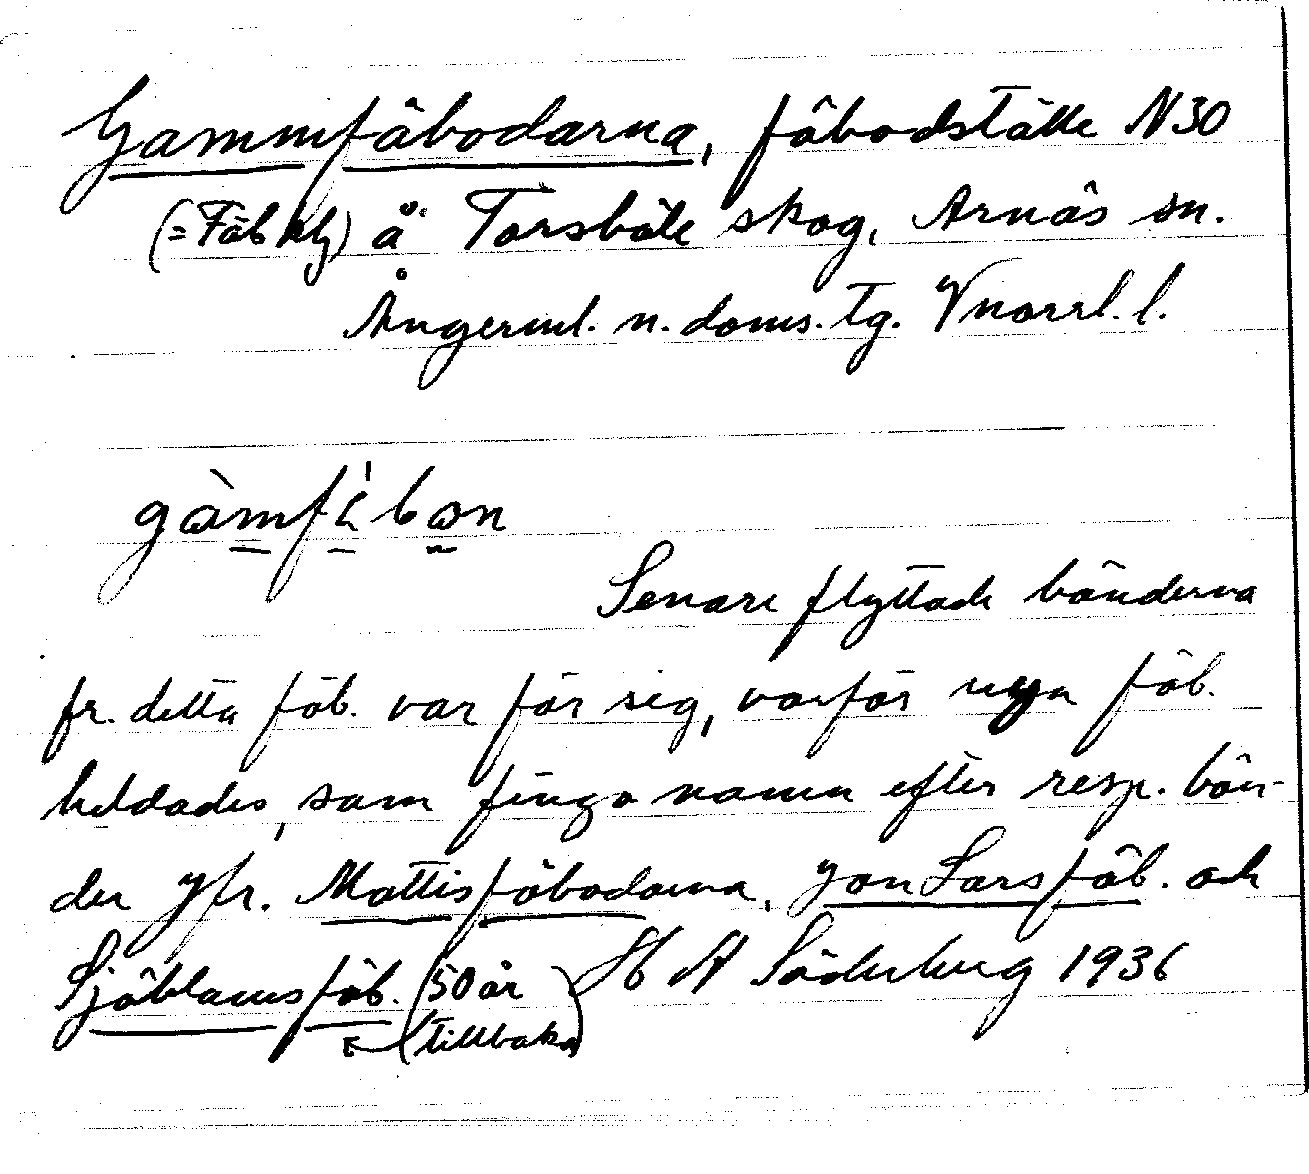 Gammfäbodarna, fäbodställe N30
(= Fäb ) å Torsböle skog, Arnäs sn.
Ångerml. n. doms. tg. Vnorrl. l.
Senare flyttade bönderna
fr. detta fäb. var för sig, varför nya fäb.
bildades, som fingo namn efter resp. bön-
der Jfr. Mattisfäbodarna, JonLarsfäb. och
Sjöblomsfäb. (50 år tillbaka) H A Söderberg 1936